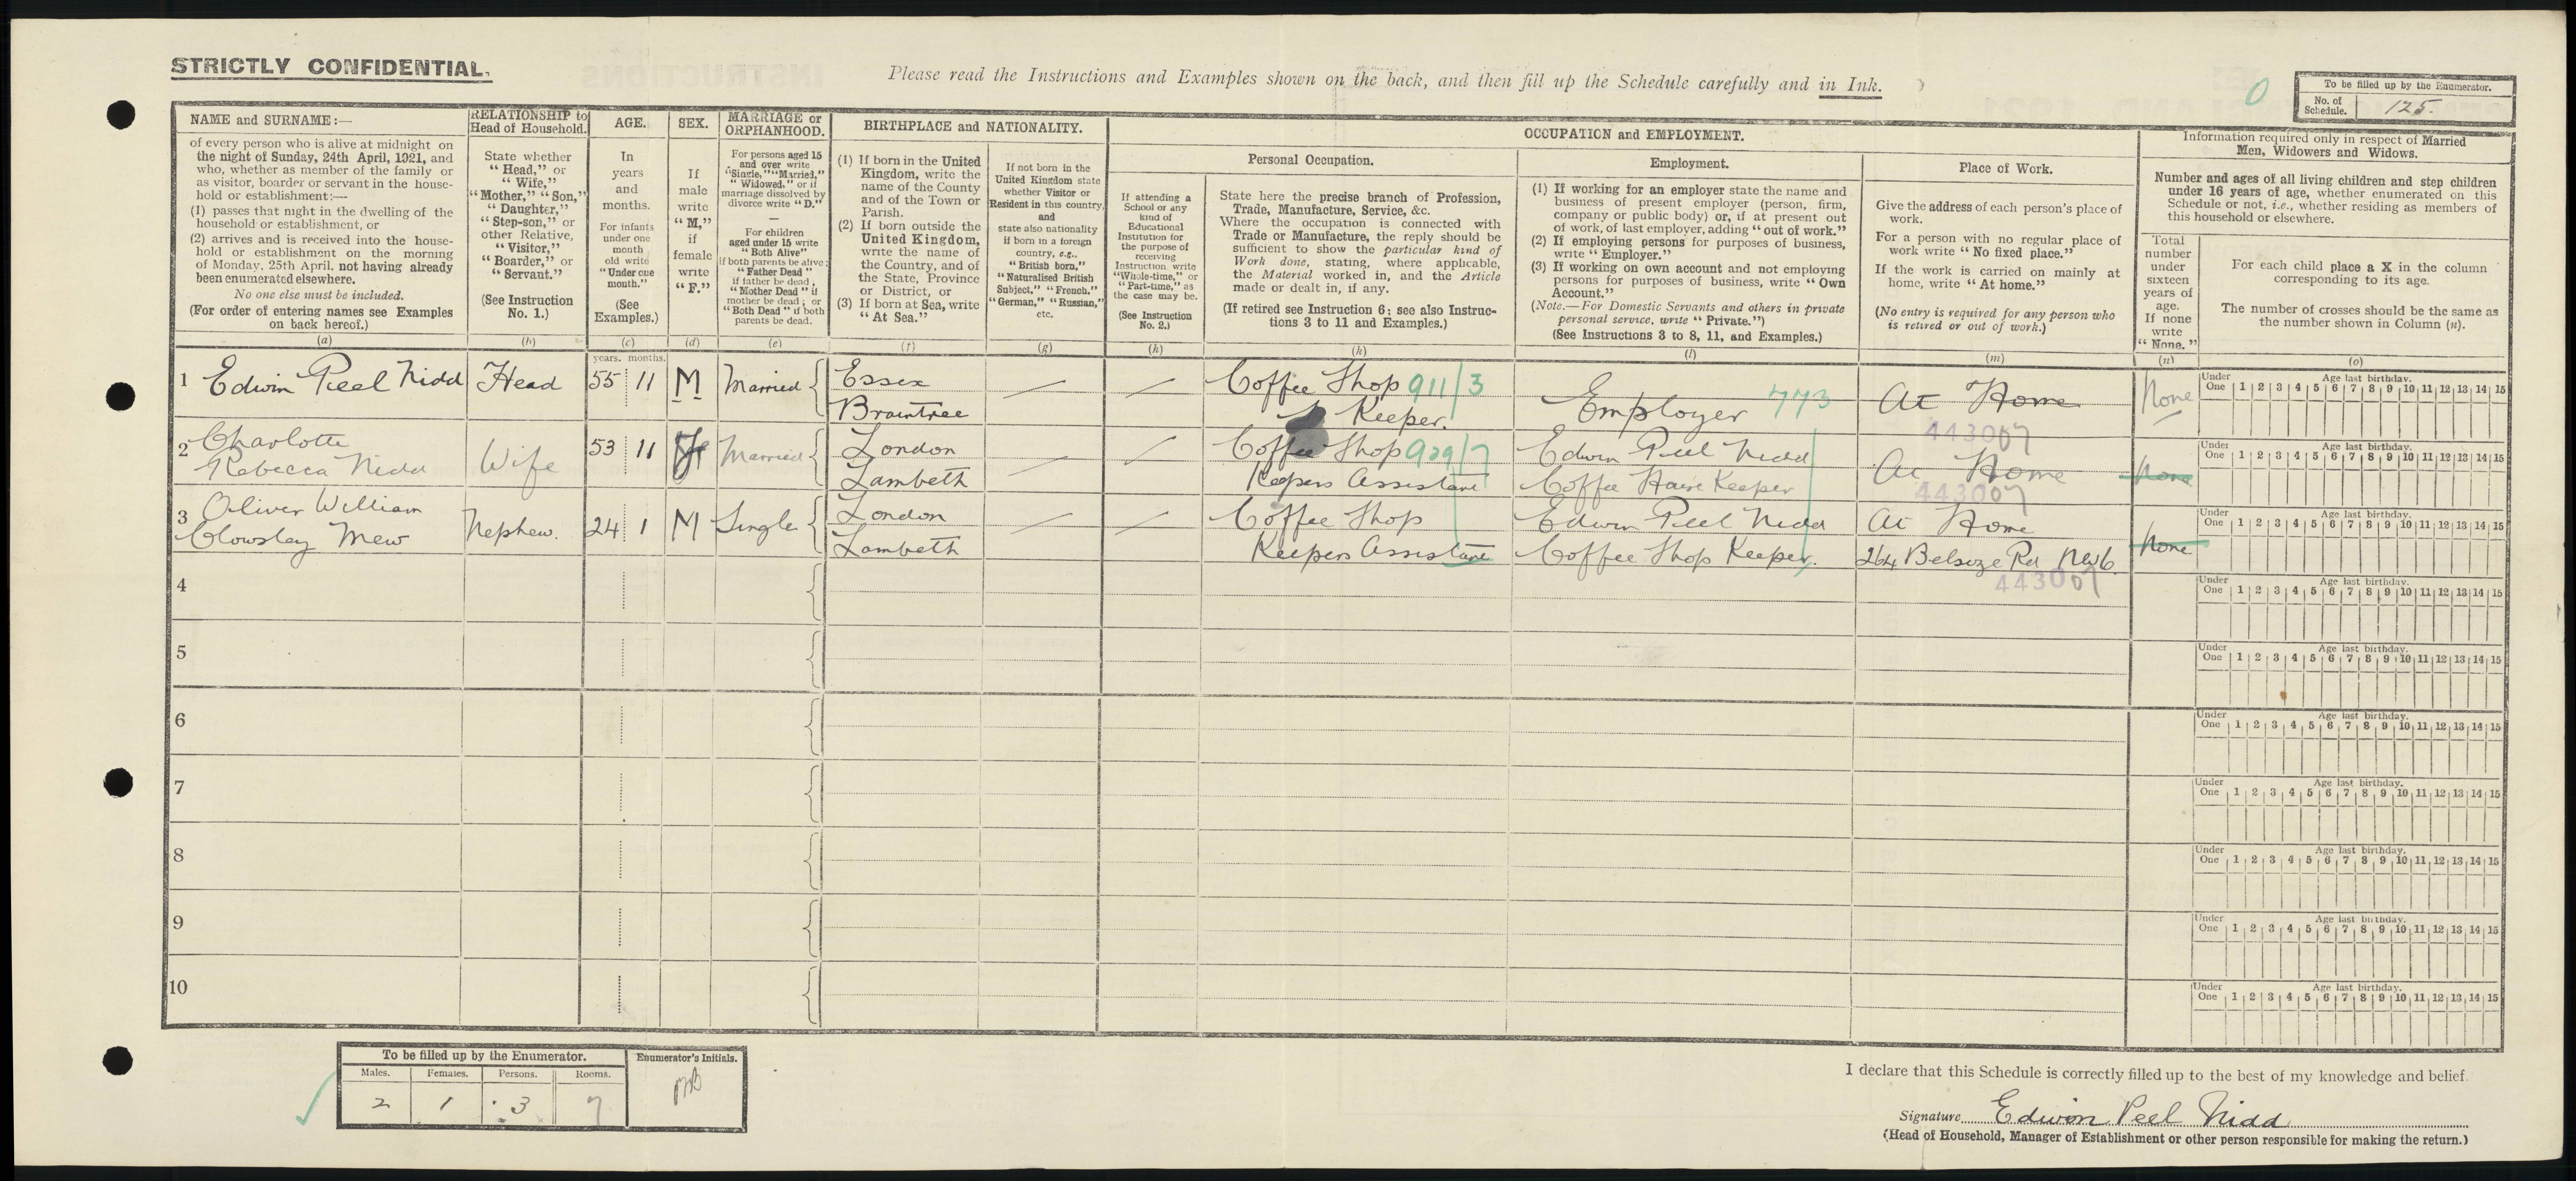 STRICTLY CONFIDENTIAL.
Please read the Instructions and Examples shown on the back, and then fill up the Schedule carefully and in Ink.
0
To be filled up by the Enumerator.
No. of Schedule. 125.
NAME and SURNAME:—
of every person who is alive at midnight on
the night of Sunday, 24th April, 1921, and
who, whether as member of the family or
as visitor, boarder or servant in the house-
hold or establishment:—
(1) passes that night in the dwelling of the
household or establishment, or
(2) arrives and is received into the house-
hold or establishment on the morning
of Monday, 25th April, not having already
been enumerated elsewhere.
No one else must be included.
(For order of entering names see Examples
on back hereof.)
(a)
RELATIONSHIP to
Head of Household.
State whether
"Head," or
"Wife,"
"Mother," "Son,"
"Daughter,"
"Step-son," or
other Relative,
"Visitor,"
"Boarder," or
"Servant."
(See Instruction
No. 1.)
(b)
AGE.
In
years
and
months.
For infants
under one
month
old write
"Under one
month."
(See
Examples.)
(c)
SEX.
If
male
write
"M,"
if
female
write
"F."
(d)
MARRIAGE or
ORPHANHOOD.
For persons aged 15
and over write
"Single," "Married,"
"Widowed," or if
marriage dissolved by
divorce write "D."
—
For children
aged under 15 write
"Both Alive"
if both parents be alive;
"Father Dead"
if father be dead,
"Mother Dead" if
mother be dead; or
"Both Dead" if both
parents be dead.
(e)
BIRTHPLACE and NATIONALITY.
(1) If born in the United
Kingdom, write the
name of the County
and of the Town or
Parish.
(2) If born outside the
United Kingdom,
write the name of
the Country, and of
the State, Province
or District, or
(3) If born at Sea, write
"At Sea."
(f)
If not born in the
United Kingdom state
whether Visitor or
Resident in this country,
and
state also nationality
if born in a foreign
country, e.g.,
"British born,"
"Naturalised British
Subject," "French,"
"German," "Russian,"
etc.
(g)
OCCUPATION and EMPLOYMENT.
Personal Occupation.
If attending a
School or any
kind of
Educational
Institution for
the purpose of
receiving
Instruction write
"Whole-time," or
"Part-time," as
the case may be.
(See Instruction
No. 2.)
(h)
State here the precise branch of Profession,
Trade, Manufacture, Service, &c.
Where the occupation is connected with
Trade or Manufacture, the reply should be
sufficient to show the particular kind of
Work done, stating, where applicable,
the Material worked in, and the Article
made or dealt in, if any.
(If retired see Instruction 6; see also Instruc-
tions 3 to 11 and Examples.)
(k)
Employment.
(1) If working for an employer state the name and
business of present employer (person, firm,
company or public body) or, if at present out
of work, of last employer, adding "out of work."
(2) If employing persons for purposes of business,
write "Employer."
(3) If working on own account and not employing
persons for purposes of business, write "Own
Account."
(Note.—For Domestic Servants and others in private
personal service, write "Private.")
(See Instructions 3 to 8, 11, and Examples.)
(l)
Place of Work.
Give the address of each person's place of
work.
For a person with no regular place of
work write "No fixed place."
If the work is carried on mainly at
home, write "At home."
(No entry is required for any person who
is retired or out of work.)
(m)
Information required only in respect of Married
Men, Widowers and Widows.
Number and ages of all living children and step children
under 16 years of age, whether enumerated on this
Schedule or not, i.e., whether residing as members of
this household or elsewhere.
Total
number
under
sixteen
years of
age.
If none
write
"None."
(n)
For each child place a X in the column
corresponding to its age.
The number of crosses should be the same as
the number shown in Column (n).
(o)
years. months.
1 Edwin Peel Nidd Head 55 11 M Married Essex Coffee Shop 911/3 Employer 773 At Home None
Braintree Keeper.
Under One Age last birthday. 1 2 3 4 5 6 7 8 9 10 11 12 13 14 15
443007
2 Charlotte Rebecca Nidd Wife 53 11 F Married London Coffee Shop 929/7 Edwin Peel Nidd At Home None
Lambeth Keepers Assistant Coffee House Keeper
Under One Age last birthday. 1 2 3 4 5 6 7 8 9 10 11 12 13 14 15
443007
3 Oliver William Clowsley Mew Nephew. 24 1 M Single London Coffee Shop Edwin Peel Nidd At Home None
Lambeth Keepers Assistant Coffee Shop Keeper. 264 Belsize Rd NW6.
Under One Age last birthday. 1 2 3 4 5 6 7 8 9 10 11 12 13 14 15
443007
4
Under One Age last birthday. 1 2 3 4 5 6 7 8 9 10 11 12 13 14 15
5
Under One Age last birthday. 1 2 3 4 5 6 7 8 9 10 11 12 13 14 15
6
Under One Age last birthday. 1 2 3 4 5 6 7 8 9 10 11 12 13 14 15
7
Under One Age last birthday. 1 2 3 4 5 6 7 8 9 10 11 12 13 14 15
8
Under One Age last birthday. 1 2 3 4 5 6 7 8 9 10 11 12 13 14 15
9
Under One Age last birthday. 1 2 3 4 5 6 7 8 9 10 11 12 13 14 15
10
Under One Age last birthday. 1 2 3 4 5 6 7 8 9 10 11 12 13 14 15
To be filled up by the Enumerator.
Enumerator's Initials.
Males. Females. Persons. Rooms.
2 1 3 7
I declare that this Schedule is correctly filled up to the best of my knowledge and belief.
Signature Edwin Peel Nidd
(Head of Household, Manager of Establishment or other person responsible for making the return.)